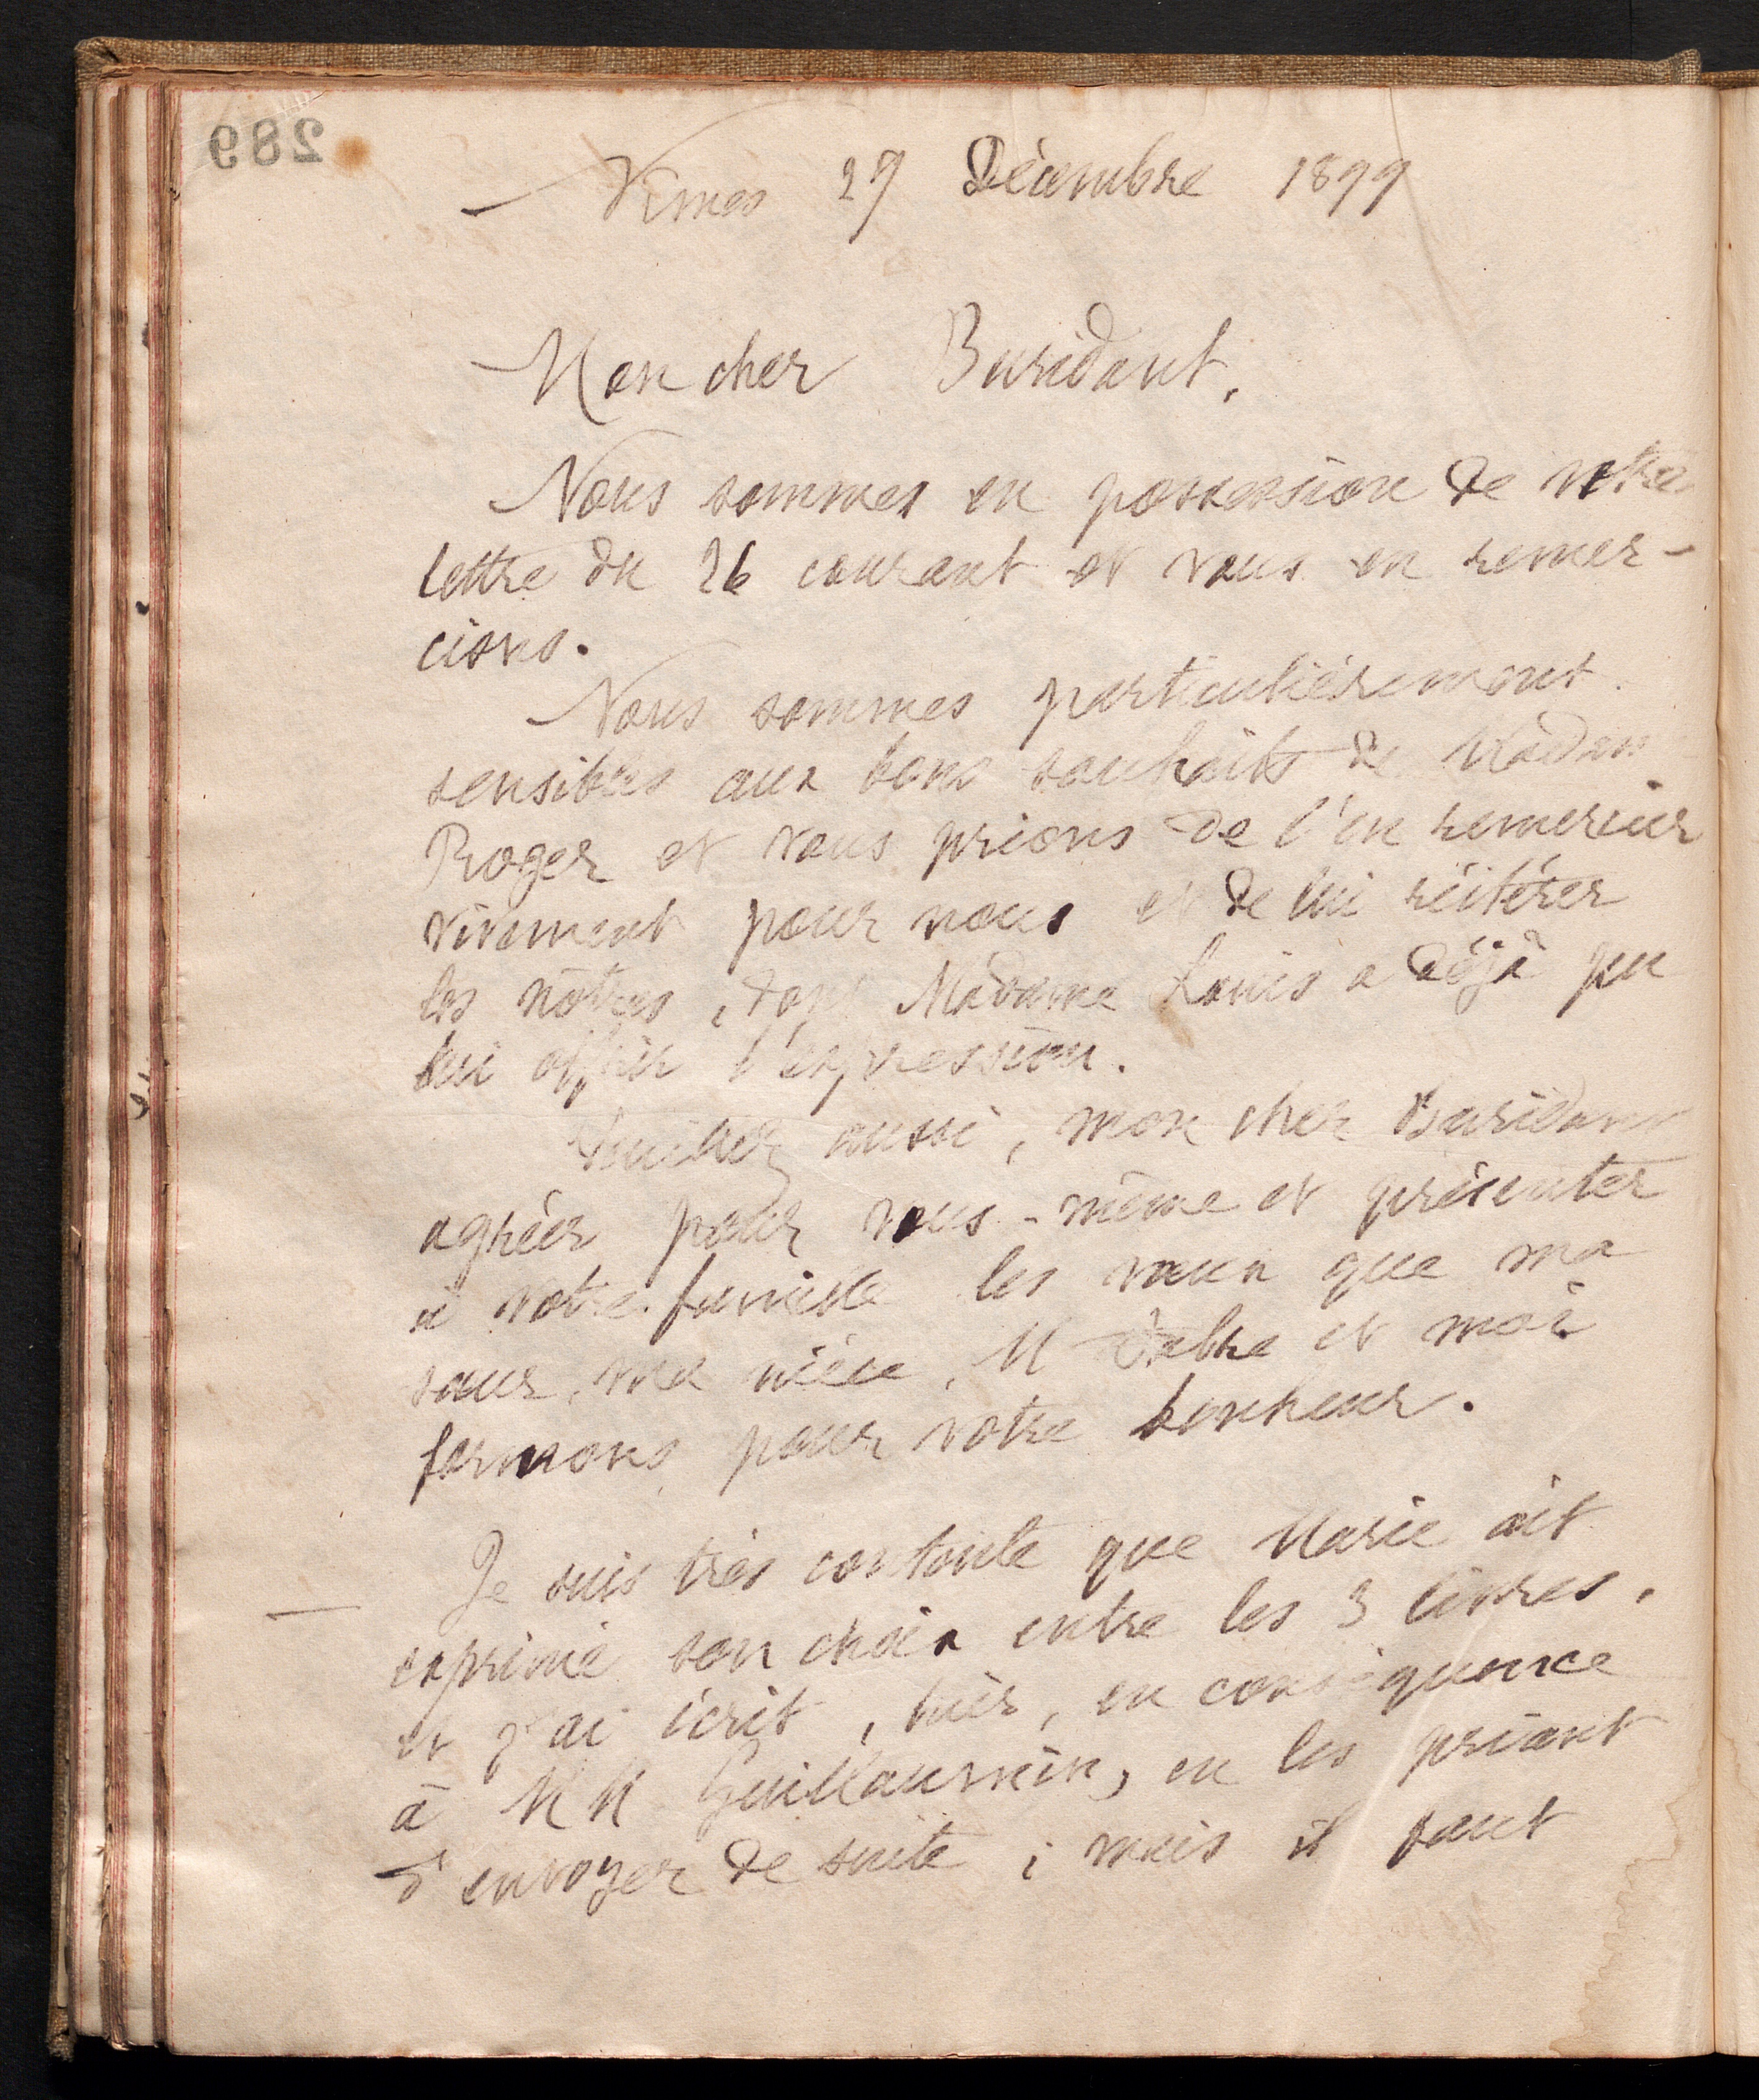 289
Nimes 27 Décembre 1899
Mon cher Buridant,
Nous sommes en possession de votre
lettre du 26 courant et vous en remer-
cions.
Nous sommes particulièrement
sensibles aux bons souhaits de Madam
Roger et vous prions de l'en remercier
vivement pour nous et de lui réitérer
les nôtres, dont Madame Louis a déjà pu
lui offrir l'expression.
Veuillez aussi, mon cher Buridant
agréer pour vous-même et présenter
à votre famille les vœux que ma
sœur, ma nièce, M Fabre et moi
formons pour votre bonheur.
Je suis très contente que Marie ait
exprimé son choix entre les 3 livres,
et j'ai écrit, hier, en conséquence
à MM Guillaumin, en les priant
d'envoyer de suite ; mais il faut